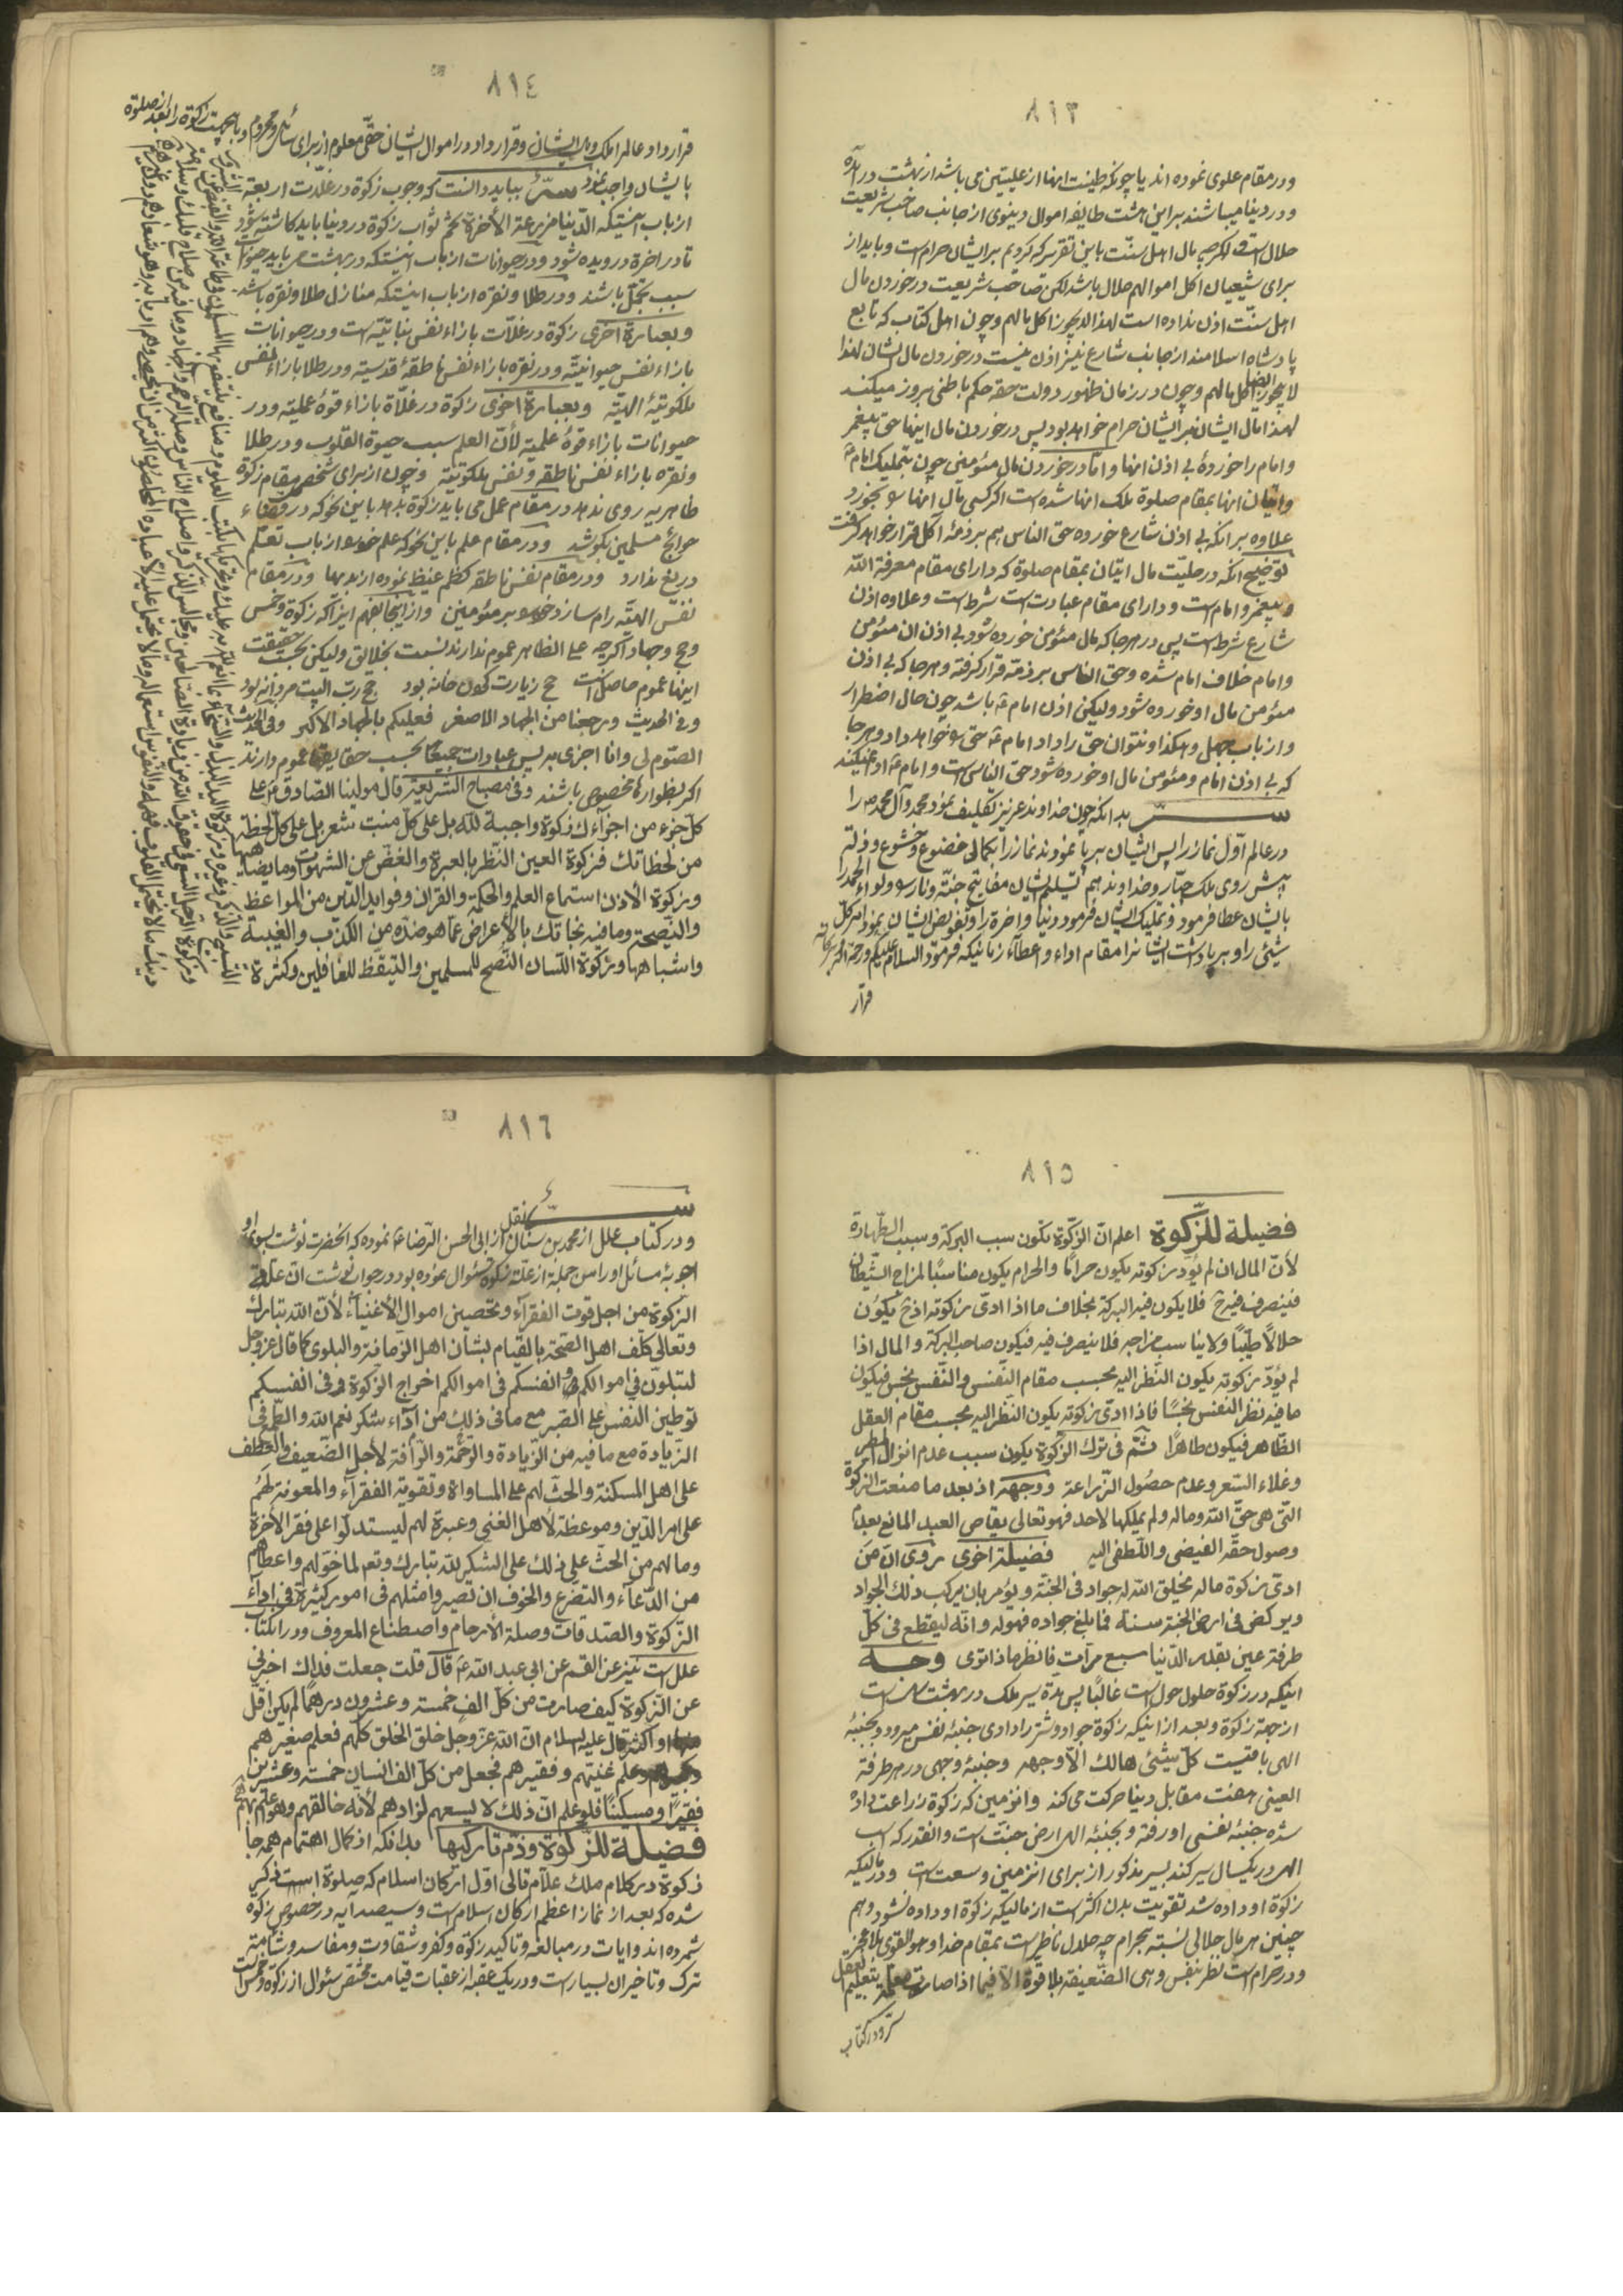 ٨١٣
ودر مقام علوی نموده اند یا چونکه طینت انها از علیین می باشد از بهشت در آمده
ودر دنیا میباشند براین هشت طایفه اموال دینوی از جانب صاحب شریعت
حلال است و اکرچه مال اهل سنّت باین تقریر که کردیم برایشان حرام است و باید از
برای شیعیان اکل اموالهم حلال باشد لکن صاحب شریعت در خوردن مال
اهل سنّت اذن نداده است لهذا لایجوز اکل مالهم وچون اهل کتاب که تابع
پادشاه اسلامند از جانب شارع نیز اذن نیست در خوردن مال ایشان لهذا
لایجوز ایضا اکل مالهم وچون در زمان ظهور دولت حقه حکم باطنی بروز میکند
لهذا مال ایشان برایشان حرام خواهد بود پس در خوردن مال اینها حتی پیغمبر
وامام را خوردۀ بی اذن انها و اما در خوردن مال مئومنی چون بتملیک امام ع
واتیان انها بمقام صلوة ملک انها شده است اکر کسی مال انها بخورد
علاوه بر انکه بی اذن شارع خورده حق الناس هم بر ذمۀ اکل قرار خواهد کرفت
توضیح انکه در حلیّت مال اتیان بمقام صلوة که دارای مقام معرفة الله
و پیغمبر و امام است و دارای مقام عبادت است شرط است و علاوه اذن
شارع شرط است پس در هرجا که مال مئومن خورده شود بی اذن ان مئومن
وامام خلاف امام شده و حق الناس بر ذمّه قرار کرفته و هرجا که بی اذن
مئومن مال او خورده شود ولیکن اذن امام ع باشد چون حال اضطرار
و از باب جهل وهکذا ونتوان حق را داد امام ع حق خواهد داد و هرجا
که بی اذن امام و مئومن مال او خورده شود حق الناس است و امام ع ادا نمیکند
ســـر بدانکه چون خداوند عزیز تکلیف نمود محمد و آل محمد ص را
در عالم اوّل نماز را پس ایشان برپا نمودند نماز را بکمال خضوع و خشوع و ذلّت
پیش روی ملک جبّار و خداوند هم تسلیم ایشان مفاتیح جنّة ونار و لواء الحمد را
بایشان عطا فرمود و تملیک ایشان فرمود دنیا و اخرة را و تفویض ایشان نمود امر کلّ
شیئ را و برپا داشت ایشانرا مقام اداء و اعطاء زمانیکه فرمود السلام علیکم ورحمة الله وبرکاته
قرار
٨١٤
قرار داد عالم را ملک وپل ایشان وقرار داد در اموال ایشان حقّی معلوم از برای سائل و محروم وباینجهت زکوة را بعد از صلوة
بایشان واجب نمود سرّ بباید دانست که وجوب زکوة در غلّات اربعه
از باب اینستکه الدّنیا مزرعة الأخرة تخم ثواب زکوة در دنیا باید کاشته شود
تا در اخرة درویده شود ودر حیوانات از باب اینستکه در بهشت باید حیوان
سبب تجمّل باشند ودر طلا ونقره از باب اینستکه منازل طلا ونقره باشد
وبعبارة اخری زکوة در غلّات بازاء نفس نباتیّه است ودر حیوانات
بازاء نفس حیوانیّه ودر نقره بازاء نفس ناطقۀ قدسیّه ودر طلا بازاء نفس
ملکوتیّۀ الهیّه وبعبارة اخری زکوة در غلّاة بازاء قوۀ عملیّه ودر
حیوانات بازاء قوۀ علمیّه لأنّ العلم سبب حیوة القلوب ودر طلا
ونقره بازاء نفس ناطقه ونفس ملکوتیّه وچون از برای شخص مقام زکوة
ظاهریه روی ندهد در مقام عمل می باید زکوة بدهد باین نحو که در قضاء
حوائج مسلمین بکوشد ودر مقام علم باین نحو که علم خود از باب تعلّم
دریغ ندارد ودر مقام نفس ناطقه کظم غیظ نموده از بدیها ودر مقام
نفس الهیّه رام سازد خود بر مئومنین واز اینجا بفهم اینرا که زکوة وخمس
وحج وجهاد اکرچه علی الظاهر عموم ندارند نسبت بخلائق ولیکن بحسب حقیقت
اینها عموم حاصل است حج زیارت کردن خانه بود حج ربّ البیت مردانه بود
وفی الحدیث ورجعنا من الجهاد الاصغر فعلیکم بالجهاد الاکبر وفی الحدیث
الصّوم لی وانا اجزی به پس عبادات جمیعا بحسب حقایقها عموم دارند
اکر بظواهرها مخصوص باشند وفی مصباح الشریعة قال مولینا الصّادق ع علی
کلّ جزء من اجزآءک زکوة واجبة للّه بل علی کلّ منبت شعر بل علی کلّ لحظة
من لحظاتک فزکوة العین النّظر بالعبرة والغضّ عن الشهوات وما یضاهیها
وزکوة الأذن استماع العلم والحکمة والقران وفواید الدّین من المواعظ
والنّصیحة وما فیه نجاتک بالأعراض عمّا هو ضدّه من الکذب والغیبة
واشباهها وزکوة اللّسان النّصح للمسلمین والتیقّظ للغافلین وکثرة
٨١٥
فضیلة للزّکوة اعلم انّ الزّکوة تکون سبب البرکة وسبب الطّهارة
لأنّ المال ان لم یؤد زکوته یکون حرامًا والحرام یکون مناسبًا لمزاج الشّیطان
فینصرف فیه ح فلا یکون فیه البرکة بخلاف ما اذا ادّی زکوته اذ ح یکون
حلالًا طیّبًا ولا یناسب مزاجه فلا ینصرف فیه فیکون صاحب البرکة والمال اذا
لم یؤدّ زکوته یکون النّظر الیه بحسب مقام النّفس والنّفس نجس فیکون
ما فیه نظر النّفس نجسًا فاذا ادّی زکوته یکون النّظر الیه بحسب مقام العقل
الظّاهر فیکون طاهرًا ثمّ فی ترک الزّکوة یکون سبب عدم انزال المطر
وغلاء السّعر وعدم حصُول الزّراعة ووجهه اذ بعد ما منعت الزکوة
الّتی هی حقّ اللّه وماله ولم یملکها لأحد فهو تعالی یقاص العبد المانع بعدم
وصول حقّه الفیضی واللّطفی الیه فضیلة اخری روی انّ من
ادّی زکوة ماله یخلق اللّه له جواد فی الجنّة ویؤمر بان یرکب ذلک الجواد
ویرکض فی ارض الجنة سنة فما بلغ جواده فهو له وانّه لیقطع فی کلّ
طرفة عین بقدر الدّنیا سبع مرآت فانظر ماذا تری وجه
اینکه در زکوة حلول حول است غالبًا پس مدة سیر ملک در بهشت است
از جهة زکوة وبعد از اینکه زکوة جواد وشتر را دادی جنبۀ نفس میرود وبجنبۀ
الهی باقیست کلّ شیئ هالک الّا وجهه وجنبۀ وجهی در هر طرفة
العینی هفت مقابل دنیا حرکت می کند وانزمین که زکوة زراعت داده
شده جنبۀ نفسی او رفته وبجنبۀ الهی ارض جنّت است وانقدر که اسب
الهی در یکسال سیر کند بسیر مذکور از برای انزمین وسعت است ودر مالیکه
زکوة او داده شد تقویت بدن اکثر است از مالیکه زکوة او داده نشود وهم
چنین هر مال حلالی نسبة بحرام چه حلال ناظر است بمقام خدا وهو القوی بلا عجز
ودر حرام است نظر بنفس وهی الضّعیفة بلا قوة الّا فیما اذا صارت معلّمة بتعلیم العقل
سرّ ودر کتاب
٨١٦
ســـرّ
ودر کتاب علل از محمد بن سنان از ابی الحسن الرّضا ع نقل نموده که انحضرت نوشت بسوی او
اجوبۀ مسائل او را من جملۀ از علّة زکوة سئوال نموده بود در جواب نوشت انّ علّة
الزّکوة من اجل قوت الفقرآء وتحصین اموال الأغنیآء لأنّ اللّه تبارک
وتعالی کلّف اهل الصّحة بالقیام بشان اهل الزّمانة والبلوی کما قال عزّ وجل
لتبلونّ فی اموالکم وانفسکم فی اموالکم اخراج الزّکوة وفی انفسکم
توطین النّفس علی الصّبر مع ما فی ذلک من ادآء شکر نعم اللّه والطّمع فی
الزّیادة مع ما فیه من الزّیادة والرّحمة والرّأفة لأهل الضّعیف والعطف
علی اهل المسکنة والحثّ لهم علی المساواة وتقویة الفقرآء والمعونة لهم
علی امر الدّین وموعظة لأهل الغنی وعبرة لهم لیستدلّوا علی فقر الأخرة
وما لهم من الحثّ علی ذلک علی الشکر للّه تبارک وتعالی لما خوّلهم واعطاهم
من الدّعآء والتضرّع والخوف ان تصیروا مثلهم فی امور کثیرة فی ادآء
الزّکوة والصّدقات وصلة الأرحام واصطناع المعروف ودر کتاب
علل است نیز عن القثم عن ابی عبد اللّه ع قال قلت جعلت فداک اخبرنی
عن الزّکوة کیف صارت من کلّ الف خمسة وعشرون درهمًا لم یکن اقلّ
او اکثر قال علیه السلام انّ اللّه عزّ وجل خلق الخلق کلّهم فعلم صغیرهم
وکبیرهم وعلم غنیّهم وفقیرهم فجعل من کلّ الف انسان خمسة وعشرین
فقیرًا ومسکینًا فلو علم انّ ذلک لا یسعهم لزادهم لأنّه خالقهم وهو اعلم بهم
فضیلة للزّکوة وذمّ تارکیها بدانکه از کمال اهتمام همه جا
زکوة در کلام ملک علّام تالی اوّل ارکان اسلام که صلوة است ذکر
شده که بعد از نماز اعظم ارکان اسلام است وسیصد آیه در خصوص زکوة
شمرده اند وایات در مبالغه وتاکید زکوة وکفر وشقاوت ومفاسد وشامت
ترک وتاخیر ان بسیار است ودر یک عقبه از عقبات قیامت مختصّ سئوال از زکوة وخمس است